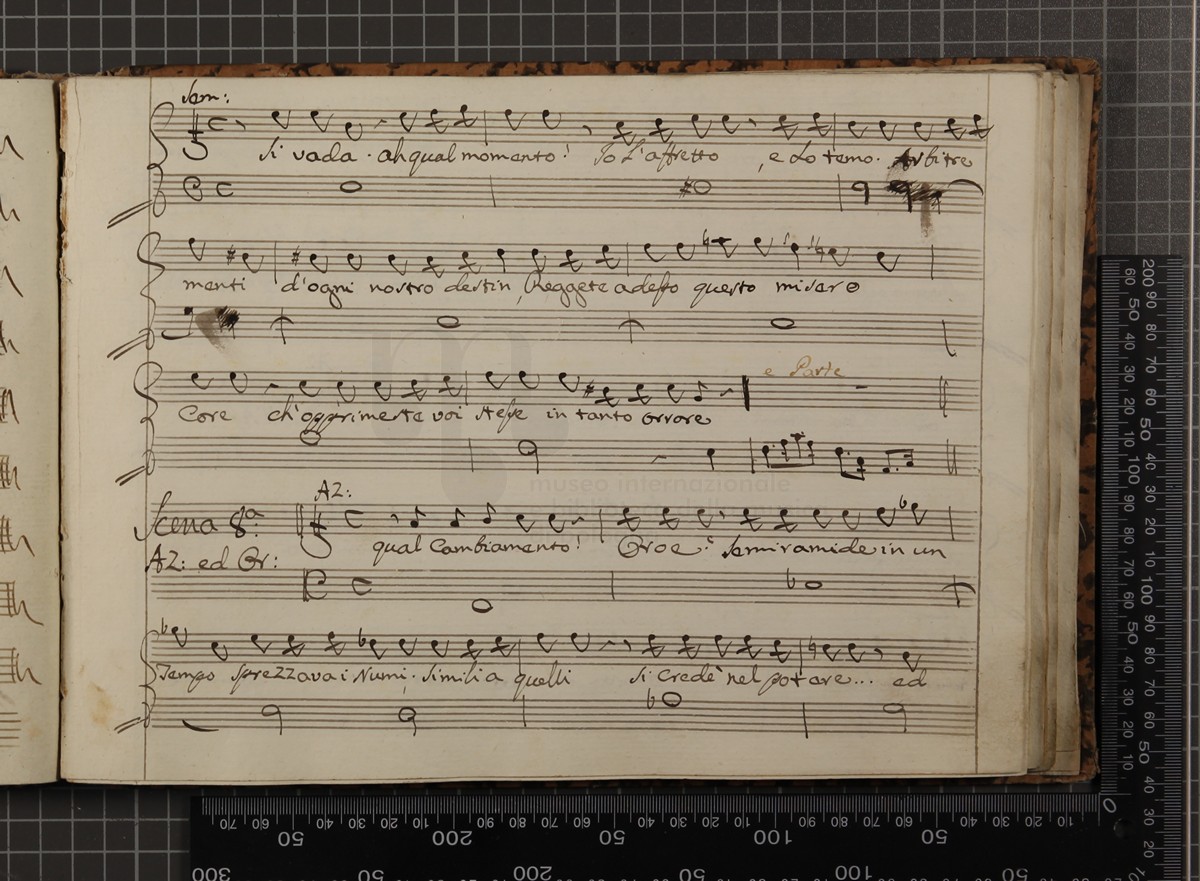 Sem:
Si vada. ah qual momento! Io L'affretto, e Lo temo. Arbitre
menti d'ogni nostro destin, Reggete adesso questo misero
e Parte
Core ch'opprimerte voi stesse in tanto orrore
museo internazionale
AZ:
Scena 8.a
qual Cambiamento! Oroe? Semiramide in un
AZ: ed Or:
Tempo sprezzava i Numi. simili a quelli si crede nel potere... ed